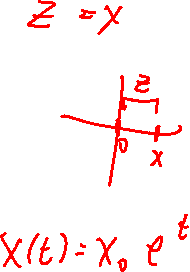 Z = x
z
0 x
x(t) = x₀ e^t